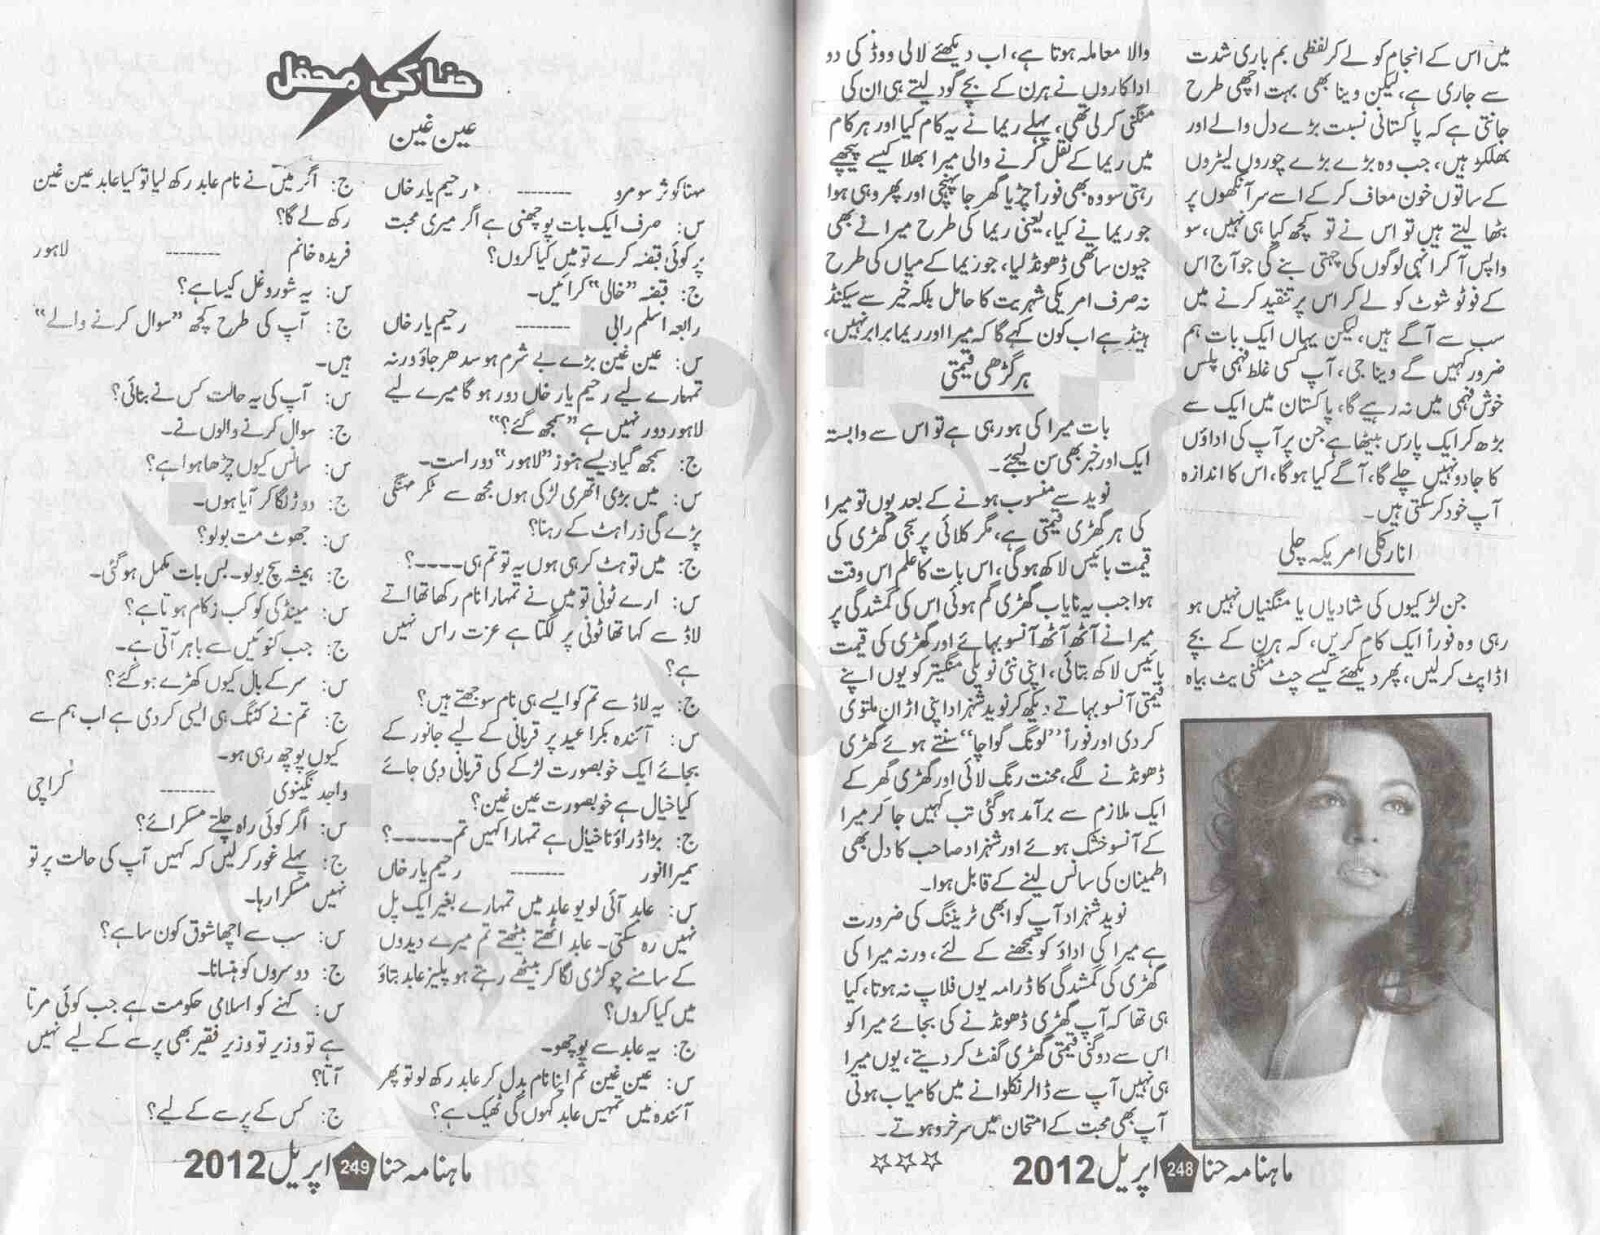 میں اس کے انجام کو لے کر لفظی بم باری شدت
سے جاری ہے، لیکن وینا بھی بہت اچھی طرح
جانتی ہے کہ پاکستانی نسبت بڑے دل والے اور
بھلکڑ ہیں، جب وہ بڑے بڑے چوروں لیٹروں
کے ساتوں خون معاف کر کے اسے سر آنکھوں پر
بٹھا لیتے ہیں تو اس نے تو کچھ کیا ہی نہیں، سو
واپس آ کر انہی لوگوں کی چہتی بنے گی جو آج اس
کے فوٹو شوٹ کو لے کر اس پر تنقید کرنے میں
سب سے آگے ہیں، لیکن یہاں ایک بات ہم
ضرور کہیں گے وینا جی، آپ کسی غلط فہمی پلس
خوش فہمی میں نہ رہیے گا، پاکستان میں ایک سے
بڑھ کر ایک پارس بیٹھا ہے جن پر آپ کی اداؤں
کا جادو نہیں چلے گا، آگے کیا ہو گا، اس کا اندازہ
آپ خود کر سکتی ہیں۔
انارکلی امریکہ چلی
جن لڑکیوں کی شادیاں یا منگنیاں نہیں ہو
رہی وہ فوراً ایک کام کریں، کہ ہرن کے بچے
اڈاپٹ کر لیں، پھر دیکھئے کیسے چٹ منگنی پٹ بیاہ
والا معاملہ ہوتا ہے، اب دیکھئے لالی ووڈ کی دو
اداکاروں نے ہرن کے بچے گود لیتے ہی ان کی
منگنی کر لی تھی، پہلے ریما نے یہ کام کیا اور ہر کام
میں ریما کے نقل کرنے والی میرا بھلا کیسے پیچھے
رہتی سو وہ بھی فوراً چڑیا گھر جا پہنچی اور پھر وہی ہوا
جو ریما نے کیا، یعنی ریما کی طرح میرا نے بھی
جیون ساتھی ڈھونڈ لیا، جو ریما کے میاں کی طرح
نہ صرف امریکی شہریت کا حامل بلکہ خیر سے سیکنڈ
ہینڈ ہے اب کون کہے گا کہ میرا اور ریما برابر نہیں،
ہر گڑھی قیمتی
بات میرا کی ہو رہی ہے تو اس سے وابستہ
ایک اور خبر بھی سن لیجئے۔
نوید سے منسوب ہونے کے بعد یوں تو میرا
کی ہر گھڑی قیمتی ہے، مگر کلائی پر سجی گھڑی کی
قیمت بائیس لاکھ ہو گی، اس بات کا علم اس وقت
ہوا جب یہ نایاب گھڑی گم ہوئی اس کی گمشدگی پر
میرا نے آٹھ آٹھ آنسو بہائے اور گھڑی کی قیمت
بائیس لاکھ بتائی، اپنی نئی نویلی منگیتر کو یوں اپنے
قیمتی آنسو بہاتے دیکھ کر نوید شہزاد اپنی اڑان ملتوی
کر دی اور فوراً ”لونگ گواچا“ سنتے ہوئے گھڑی
ڈھونڈنے لگے، محنت رنگ لائی اور گھڑی گھر کے
ایک ملازم سے برآمد ہو گئی تب کہیں جا کر میرا
کے آنسو خشک ہوئے اور شہزاد صاحب کا دل بھی
اطمینان کی سانس لینے کے قابل ہوا۔
نوید شہزاد آپ کو ابھی ٹریننگ کی ضرورت
ہے میرا کی اداؤ کو سمجھنے کے لئے، ورنہ میرا کی
گھڑی کی گمشدگی کا ڈرامہ یوں فلاپ نہ ہوتا، کیا
ہی تھا کہ آپ گھڑی ڈھونڈنے کی بجائے میرا کو
اس سے دو گنی قیمتی گھڑی گفٹ کر دیتے، یوں میرا
ہی نہیں آپ سے ڈالر نکلوانے میں کامیاب ہوتی
آپ بھی محبت کے امتحان میں سرخرو ہوتے۔
☆☆☆
ماہنامہ حنا 248 اپریل 2012
حنا کی محفل
عین غین
مہنا کوثر سومرو -------- رحیم یار خاں
س: صرف ایک بات پوچھنی ہے اگر میری محبت
پر کوئی قبضہ کرے تو میں کیا کروں؟
ج: قبضہ ”خالی“ کرائیں۔
رابعہ اسلم رابی -------- رحیم یار خاں
س: عین غین بڑے بے شرم ہو سدھر جاؤ ورنہ
تمہارے لیے رحیم یار خاں دور ہو گا میرے لیے
لاہور دور نہیں ہے ”سمجھ گئے؟“
ج: سمجھ گیا ویسے ہنوز ”لاہور“ دور است۔
س: میں بڑی اتھری لڑکی ہوں مجھ سے ٹکر مہنگی
پڑے گی ذرا ہٹ کے رہنا؟
ج: میں تو ہٹ کر ہی ہوں یہ تو تم ہی -----؟
س: ارے ٹونی تو میں نے تمہارا نام رکھا تھا اتے
لاڈ سے کہا تھا ٹونی پر لگتا ہے عزت راس نہیں
ہے؟
ج: یہ لاڈ سے تم کو ایسے ہی نام سوجھتے ہیں؟
س: آئندہ بکرا عید پر قربانی کے لیے جانور کے
بجائے ایک خوبصورت لڑکے کی قربانی دی جائے
کیا خیال ہے خوبصورت عین غین؟
ج: بڑا ڈراؤنا خیال ہے تمہارا کہیں تم -----؟
سمیرا انور -------- رحیم یار خاں
س: عابد آئی لو یو عابد میں تمہارے بغیر ایک پل
نہیں رہ سکتی۔ عابد اٹھتے بیٹھتے تم میرے دیدوں
کے سامنے چوکڑی لگا کر بیٹھے رہتے ہو پلیز عابد بتاؤ
میں کیا کروں؟
ج: یہ عابد سے پوچھو۔
س: عین غین تم اپنا نام بدل کر عابد رکھ لو تو پھر
آئندہ میں تمہیں عابد کہوں گی ٹھیک ہے؟
ج: اگر میں نے نام عابد رکھ لیا تو کیا عابد عین غین
رکھ لے گا؟
فریدہ خانم -------- لاہور
س: یہ شور و غل کیسا ہے؟
ج: آپ کی طرح کچھ ”سوال کرنے والے“
ہیں۔
س: آپ کی یہ حالت کس نے بنائی؟
ج: سوال کرنے والوں نے۔
س: سانس کیوں چڑھا ہوا ہے؟
ج: دوڑ لگا کر آیا ہوں۔
س: جھوٹ مت بولو؟
ج: ہمیشہ سچ بولو۔ بس بات مکمل ہو گئی۔
س: مینڈکی کو کب زکام ہوتا ہے؟
ج: جب کنوئیں سے باہر آتی ہے۔
س: سر کے بال کیوں کھڑے ہو گئے؟
ج: تم نے کٹنگ ہی ایسی کر دی ہے اب ہم سے
کیوں پوچھ رہی ہو۔
واجد نگینوی -------- کراچی
س: اگر کوئی راہ چلتے مسکرائے؟
ج: پہلے غور کر لیں کہ کہیں آپ کی حالت پر تو
نہیں مسکرا رہا۔
س: سب سے اچھا شوق کون سا ہے؟
ج: دوسروں کو ہنسانا۔
س: کہنے کو اسلامی حکومت ہے جب کوئی مرتا
ہے تو وزیر تو وزیر فقیر بھی پرسے کے لیے نہیں
آتا؟
ج: کس کے پرسے کے لیے؟
ماہنامہ حنا 249 اپریل 2012